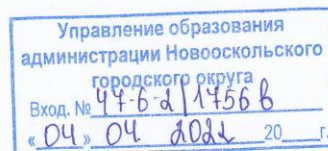 Управление образования
администрации Новооскольского
городского округа
Вход. № 47-6-2/1756 в
«04» 04 2022 20___г.